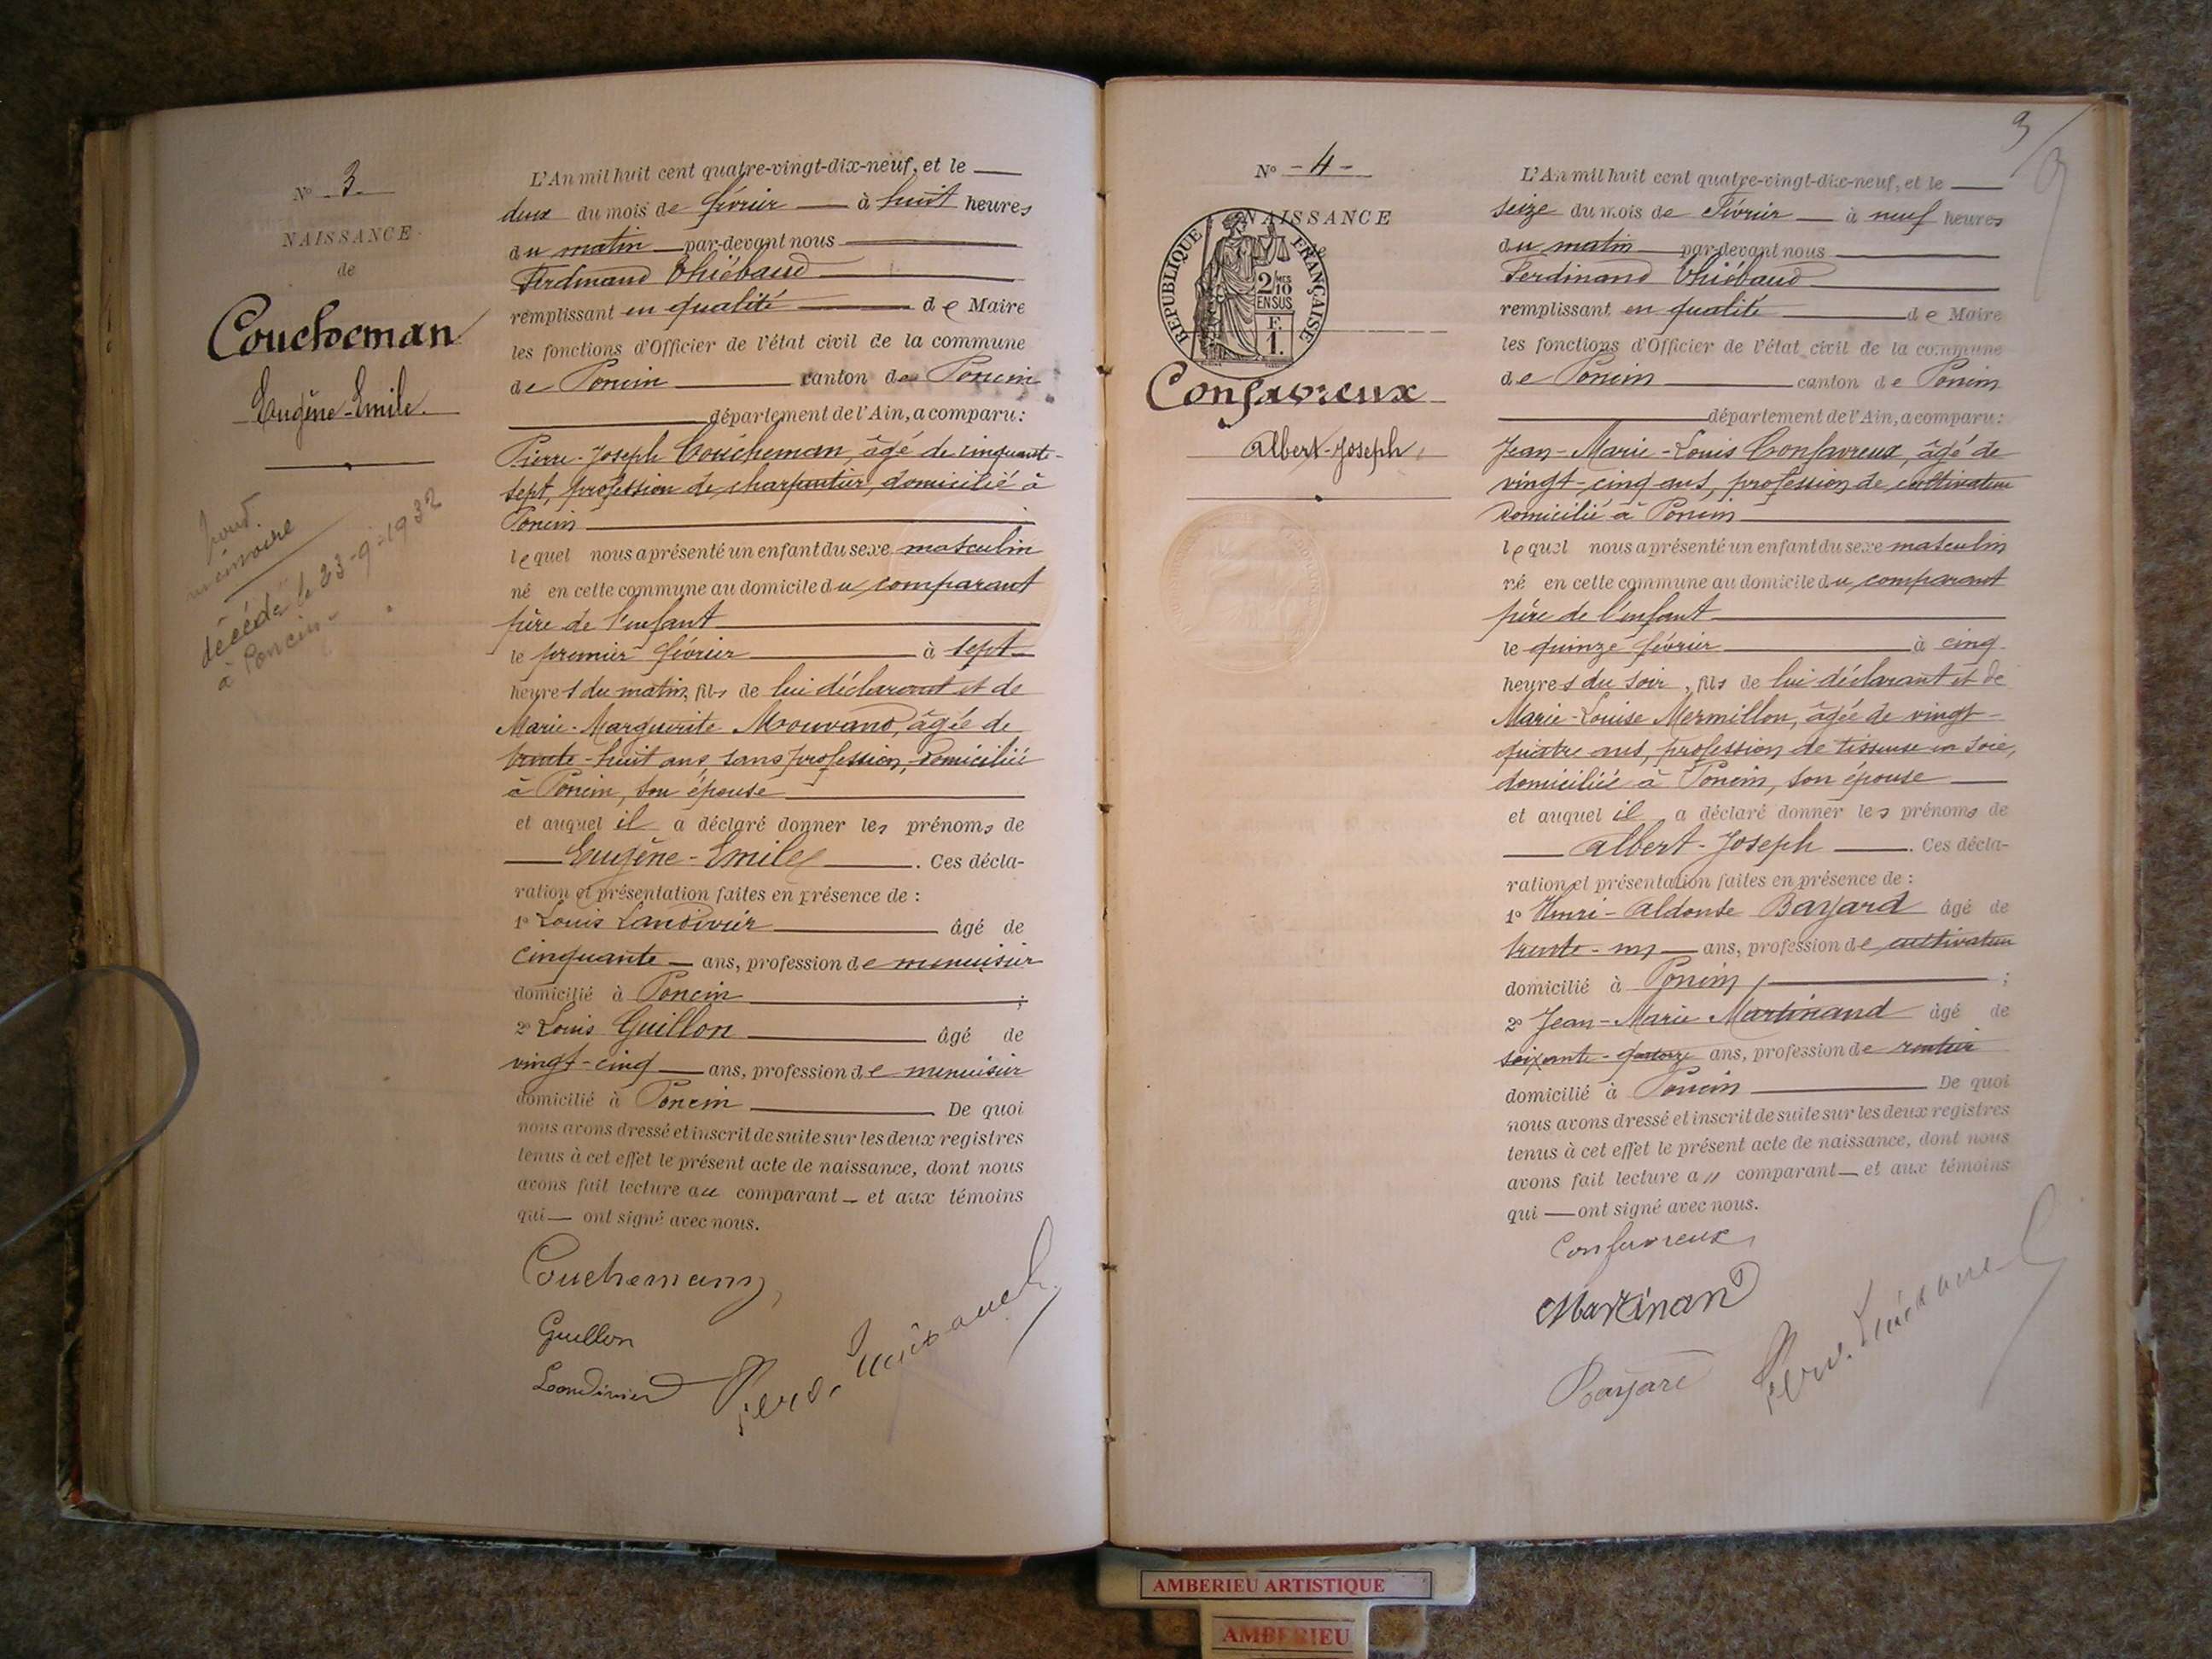 N° 3
NAISSANCE
de
Coucheman
Eugène-Emile
Pour
mémoire
décédé le 23-9-1932
à Poncin
L'An mil huit cent quatre-vingt-dix-neuf, et le
deux du mois de février à huit heures
du matin par-devant nous
Ferdinand Thiébaud
remplissant en qualité de Maire
les fonctions d'Officier de l'état civil de la commune
de Poncin canton de Poncin
département de l'Ain, a comparu:
Pierre-Joseph Coucheman, âgé de cinquante-
sept, profession de charpentier, domicilié à
Poncin
lequel nous a présenté un enfant du sexe masculin
né en cette commune au domicile du comparant
père de l'enfant
le premier février à sept
heures du matin, fils de lui déclarant et de
Marie-Marguerite Mouvand, âgée de
trente-huit ans, sans profession, domiciliée
à Poncin, son épouse
et auquel il a déclaré donner les prénoms de
Eugène-Emile. Ces décla-
ration et présentation faites en présence de :
1° Louis Landivier âgé de
cinquante ans, profession de menuisier
domicilié à Poncin ;
2° Louis Guillon âgé de
vingt-cinq ans, profession de menuisier
domicilié à Poncin De quoi
nous avons dressé et inscrit de suite sur les deux registres
tenus à cet effet le présent acte de naissance, dont nous
avons fait lecture au comparant et aux témoins
qui ont signé avec nous.
Coucheman
Guillon
Landivier
Ferd. Thiébaud
3
N° -4-
NAISSANCE
de
REPUBLIQUE FRANÇAISE
2/10
EN SUS
F.
1.
Confavreux
Albert-Joseph
L'An mil huit cent quatre-vingt-dix-neuf, et le
seize du mois de Février à neuf heures
du matin par-devant nous
Ferdinand Thiébaud
remplissant en qualité de Maire
les fonctions d'Officier de l'état civil de la commune
de Poncin canton de Poncin
département de l'Ain, a comparu:
Jean-Marie-Louis Confavreux, âgé de
vingt-cinq ans, profession de cultivateur
domicilié à Poncin
lequel nous a présenté un enfant du sexe masculin
né en cette commune au domicile du comparant
père de l'enfant
le quinze février à cinq
heures du soir, fils de lui déclarant et de
Marie-Louise Mermillon, âgée de vingt-
quatre ans, profession de tisseuse en soie,
domiciliée à Poncin, son épouse
et auquel il a déclaré donner les prénoms de
Albert-Joseph. Ces décla-
ration et présentation faites en présence de :
1° Henri-Aldonse Bayard âgé de
trente-un ans, profession de cultivateur
domicilié à Poncin ;
2° Jean-Marie Martinand âgé de
soixante-quatorze ans, profession de rentier
domicilié à Poncin De quoi
nous avons dressé et inscrit de suite sur les deux registres
tenus à cet effet le présent acte de naissance, dont nous
avons fait lecture au comparant et aux témoins
qui ont signé avec nous.
Confavreux
Martinand
Bayard
Ferd. Thiébaud
AMBERIEU ARTISTIQUE
AMBERIEU